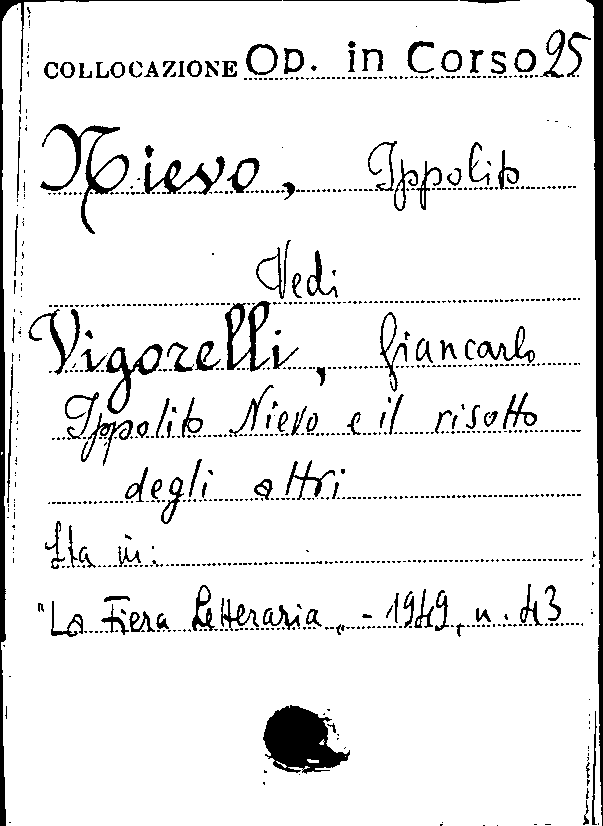 COLLOCAZIONE OP. in Corso 25
Nievo, Ippolito
Vedi
Vigorelli, Giancarlo
Ippolito Nievo e il risotto
degli altri
Sta in:
"La Fiera Letteraria„ - 1949, n. 43